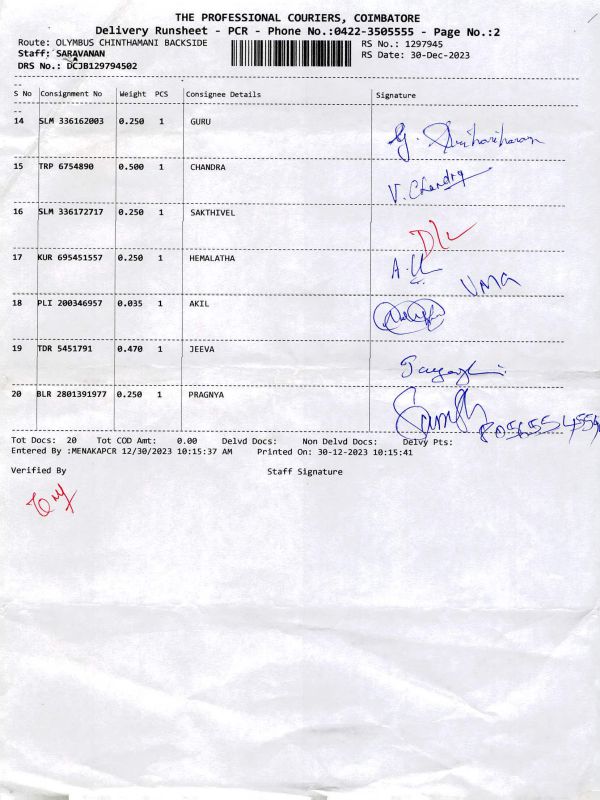 THE PROFESSIONAL COURIERS, COIMBATORE
Delivery Runsheet - PCR - Phone No.:0422-3505555 - Page No.:2
Route: OLYMBUS CHINTHAMANI BACKSIDE RS No.: 1297945
Staff; SARAVANAN RS Date: 30-Dec-2023
DRS No.: DCJB129794502
S No Consignment No Weight PCS Consignee Details Signature
14 SLM 336162003 0.250 1 GURU
15 TRP 6754890 0.500 1 CHANDRA V. Chandra
16 SLM 336172717 0.250 1 SAKTHIVEL
17 KUR 695451557 0.250 1 HEMALATHA UMA
18 PLI 200346957 0.035 1 AKIL
19 TDR 5451791 0.470 1 JEEVA
20 BLR 2801391977 0.250 1 PRAGNYA
Tot Docs: 20 Tot COD Amt: 0.00 Delvd Docs: Non Delvd Docs: Delvy Pts:
Entered By :MENAKAPCR 12/30/2023 10:15:37 AM Printed On: 30-12-2023 10:15:41
Verified By Staff Signature